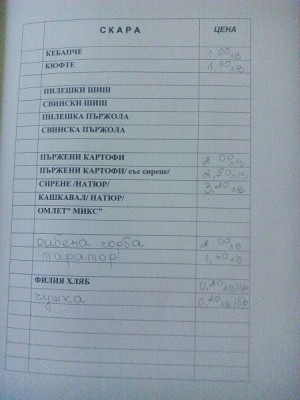 СКАРА ЦЕНА
КЕБАПЧЕ 1,00лв
КЮФТЕ 1,00лв
ПИЛЕШКИ ШИШ
СВИНСКИ ШИШ
ПИЛЕШКА ПЪРЖОЛА
СВИНСКА ПЪРЖОЛА
ПЪРЖЕНИ КАРТОФИ 2,00лв
ПЪРЖЕНИ КАРТОФИ/ със сирене/ 2,50лв
СИРЕНЕ /НАТЮР/ 3,20лв
КАШКАВАЛ/ НАТЮР/
ОМЛЕТ" МИКС"
рибена чорба 2,00лв
таратор 1,40лв
ФИЛИЯ ХЛЯБ 0,10лв/бр
чушка 0,20лв/бр